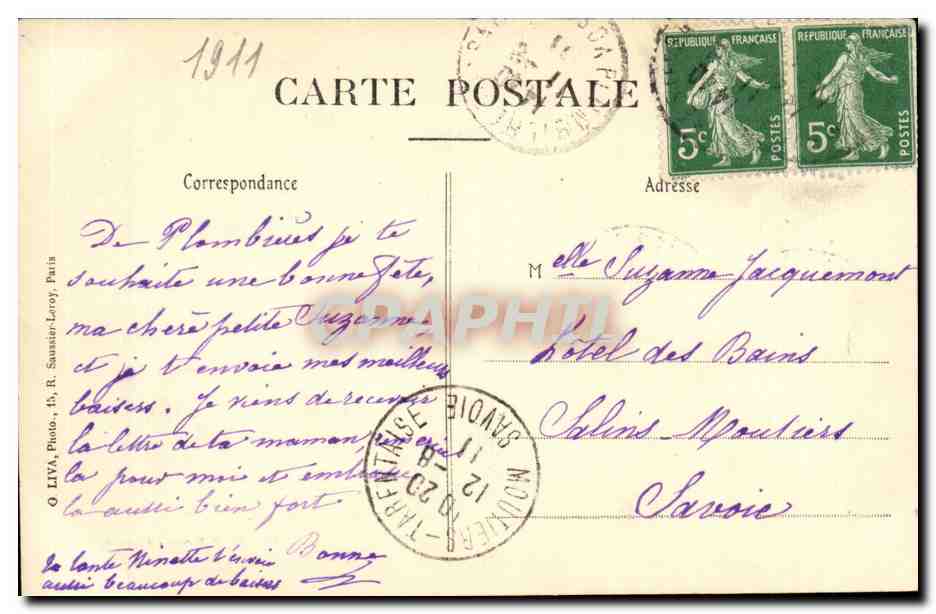 1911
CARTE POSTALE
REPUBLIQUE FRANÇAISE
5c POSTES
REPUBLIQUE FRANÇAISE
5c POSTES
Correspondance
Adresse
De Plombières je te
souhaite une bonne fête,
ma chère petite Suzanne,
et je t'envoie mes meilleurs
baisers. Je viens de recevoir
la lettre de ta maman,
la pour moi et embrasse
la aussi bien fort
Bonne
ta tante Ninette t'envoie
aussi beaucoup de baisers
Melle Suzanne Jacquemont
Hôtel des Bains
Salins-Moutiers
Savoie
MOUTIERS-TARENTAISE
SAVOIE
10 20
12 -8
11
O LIVA, Photo., 15, R. Saussier-Leroy, Paris
GRAPHIL